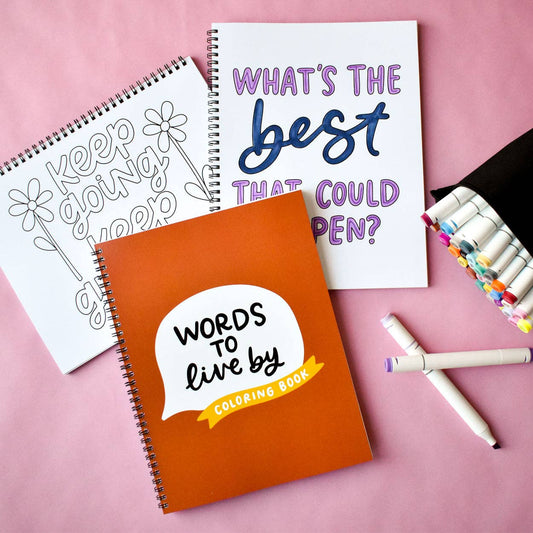 WHAT'S THE
best
THAT COULD
PEN?
keep
going
keep
WORDS
TO
live by
COLORING BOOK